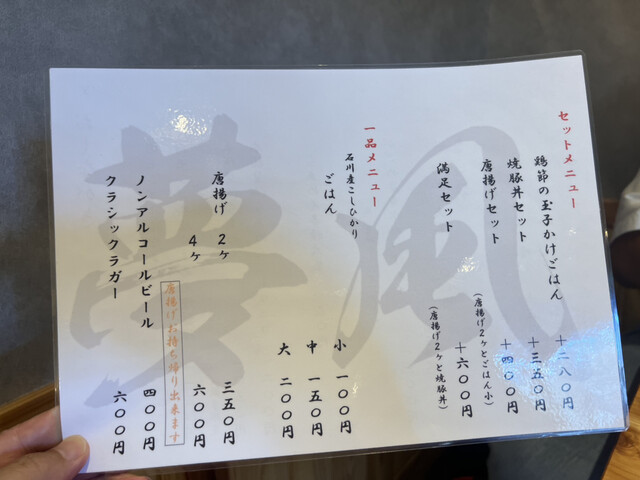 セットメニュー
鶏節の玉子かけごはん 十二八〇円
焼豚丼セット 十三五〇円
唐揚げセット (唐揚げ2ケとごはん小) 十四〇〇円
満足セット (唐揚げ2ケと焼豚丼) 十六〇〇円
一品メニュー
石川産こしひかり
ごはん 小 一〇〇円
中 一五〇円
大 二〇〇円
唐揚げ 2ケ 三五〇円
4ケ 六〇〇円
唐揚げお持ち帰り出来ます
ノンアルコールビール 四〇〇円
クラシックラガー 六〇〇円
夢風